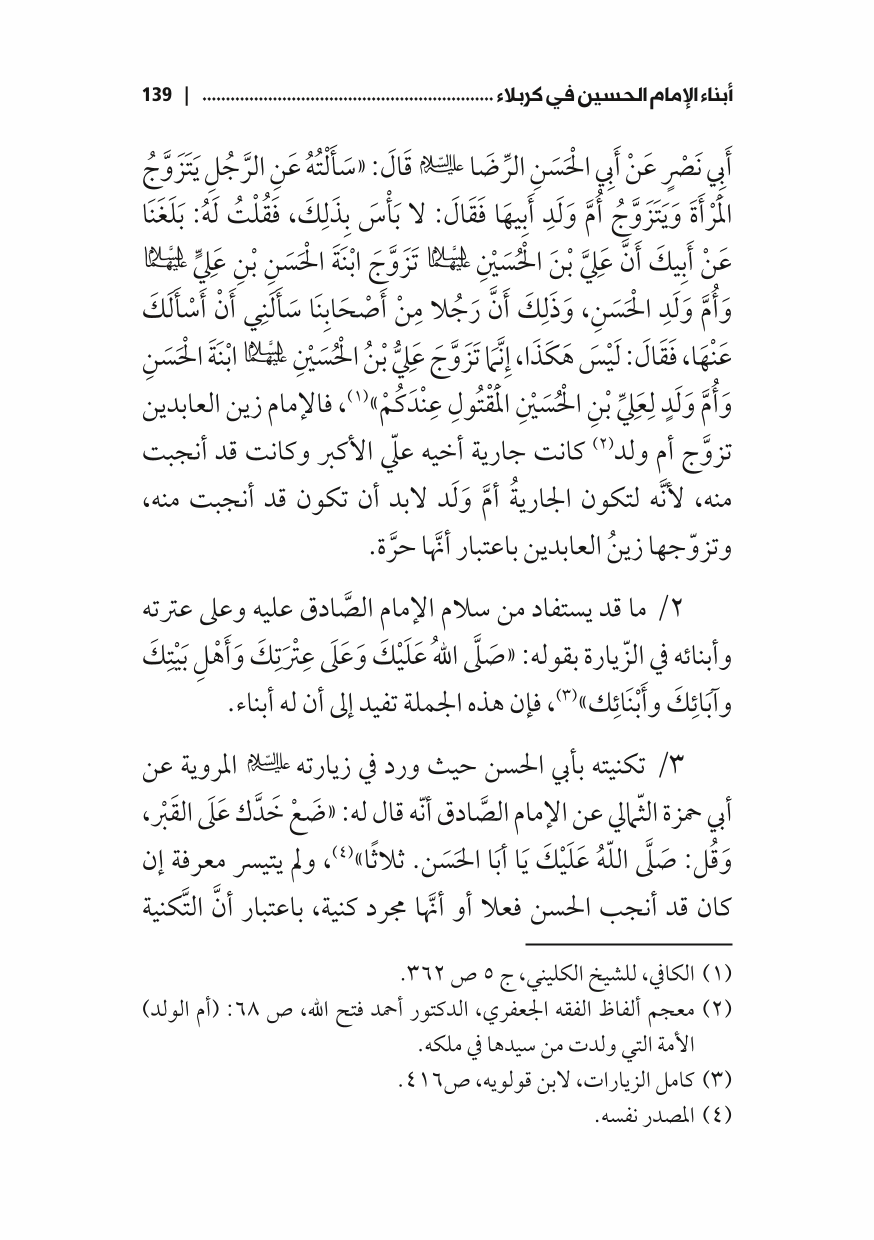 أبناء الإمام الحسين في كربلاء ............................................................... | 139
أَبِي نَصْرٍ عَنْ أَبِي الْحَسَنِ الرِّضَا عليه السلام قَالَ: «سَأَلْتُهُ عَنِ الرَّجُلِ يَتَزَوَّجُ
الْمَرْأَةَ وَيَتَزَوَّجُ أُمَّ وَلَدِ أَبِيهَا فَقَالَ: لا بَأْسَ بِذَلِكَ، فَقُلْتُ لَهُ: بَلَغَنَا
عَنْ أَبِيكَ أَنَّ عَلِيَّ بْنَ الْحُسَيْنِ عليهما السلام تَزَوَّجَ ابْنَةَ الْحَسَنِ بْنِ عَلِيٍّ عليهما السلام
وَأُمَّ وَلَدِ الْحَسَنِ، وَذَلِكَ أَنَّ رَجُلا مِنْ أَصْحَابِنَا سَأَلَنِي أَنْ أَسْأَلَكَ
عَنْهَا، فَقَالَ: لَيْسَ هَكَذَا، إِنَّمَا تَزَوَّجَ عَلِيُّ بْنُ الْحُسَيْنِ عليهما السلام ابْنَةَ الْحَسَنِ
وَأُمَّ وَلَدٍ لِعَلِيِّ بْنِ الْحُسَيْنِ الْمَقْتُولِ عِنْدَكُمْ»(١)، فالإمام زين العابدين
تزوَّج أم ولد(٢) كانت جارية أخيه عليّ الأكبر وكانت قد أنجبت
منه، لأنَّه لتكون الجاريةُ أمَّ وَلَد لابد أن تكون قد أنجبت منه،
وتزوّجها زينُ العابدين باعتبار أنَّها حرَّة.
٢/ ما قد يستفاد من سلام الإمام الصَّادق عليه وعلى عترته
وأبنائه في الزّيارة بقوله: «صَلَّى اللهُ عَلَيْكَ وَعَلَى عِتْرَتِكَ وَأَهْلِ بَيْتِكَ
وآبَائِكَ وأَبْنَائِك»(٣)، فإن هذه الجملة تفيد إلى أن له أبناء.
٣/ تكنيته بأبي الحسن حيث ورد في زيارته عليه السلام المروية عن
أبي حمزة الثّمالي عن الإمام الصَّادق أنّه قال له: «ضَعْ خَدَّك عَلَى القَبْر،
وَقُل: صَلَّى اللّهُ عَلَيْكَ يَا أبَا الحَسَن. ثلاثًا»(٤)، ولم يتيسر معرفة إن
كان قد أنجب الحسن فعلا أو أنَّها مجرد كنية، باعتبار أنَّ التَّكنية
(١) الكافي، للشيخ الكليني، ج ٥ ص ٣٦٢.
(٢) معجم ألفاظ الفقه الجعفري، الدكتور أحمد فتح الله، ص ٦٨: (أم الولد)
الأمة التي ولدت من سيدها في ملكه.
(٣) كامل الزيارات، لابن قولويه، ص٤١٦.
(٤) المصدر نفسه.